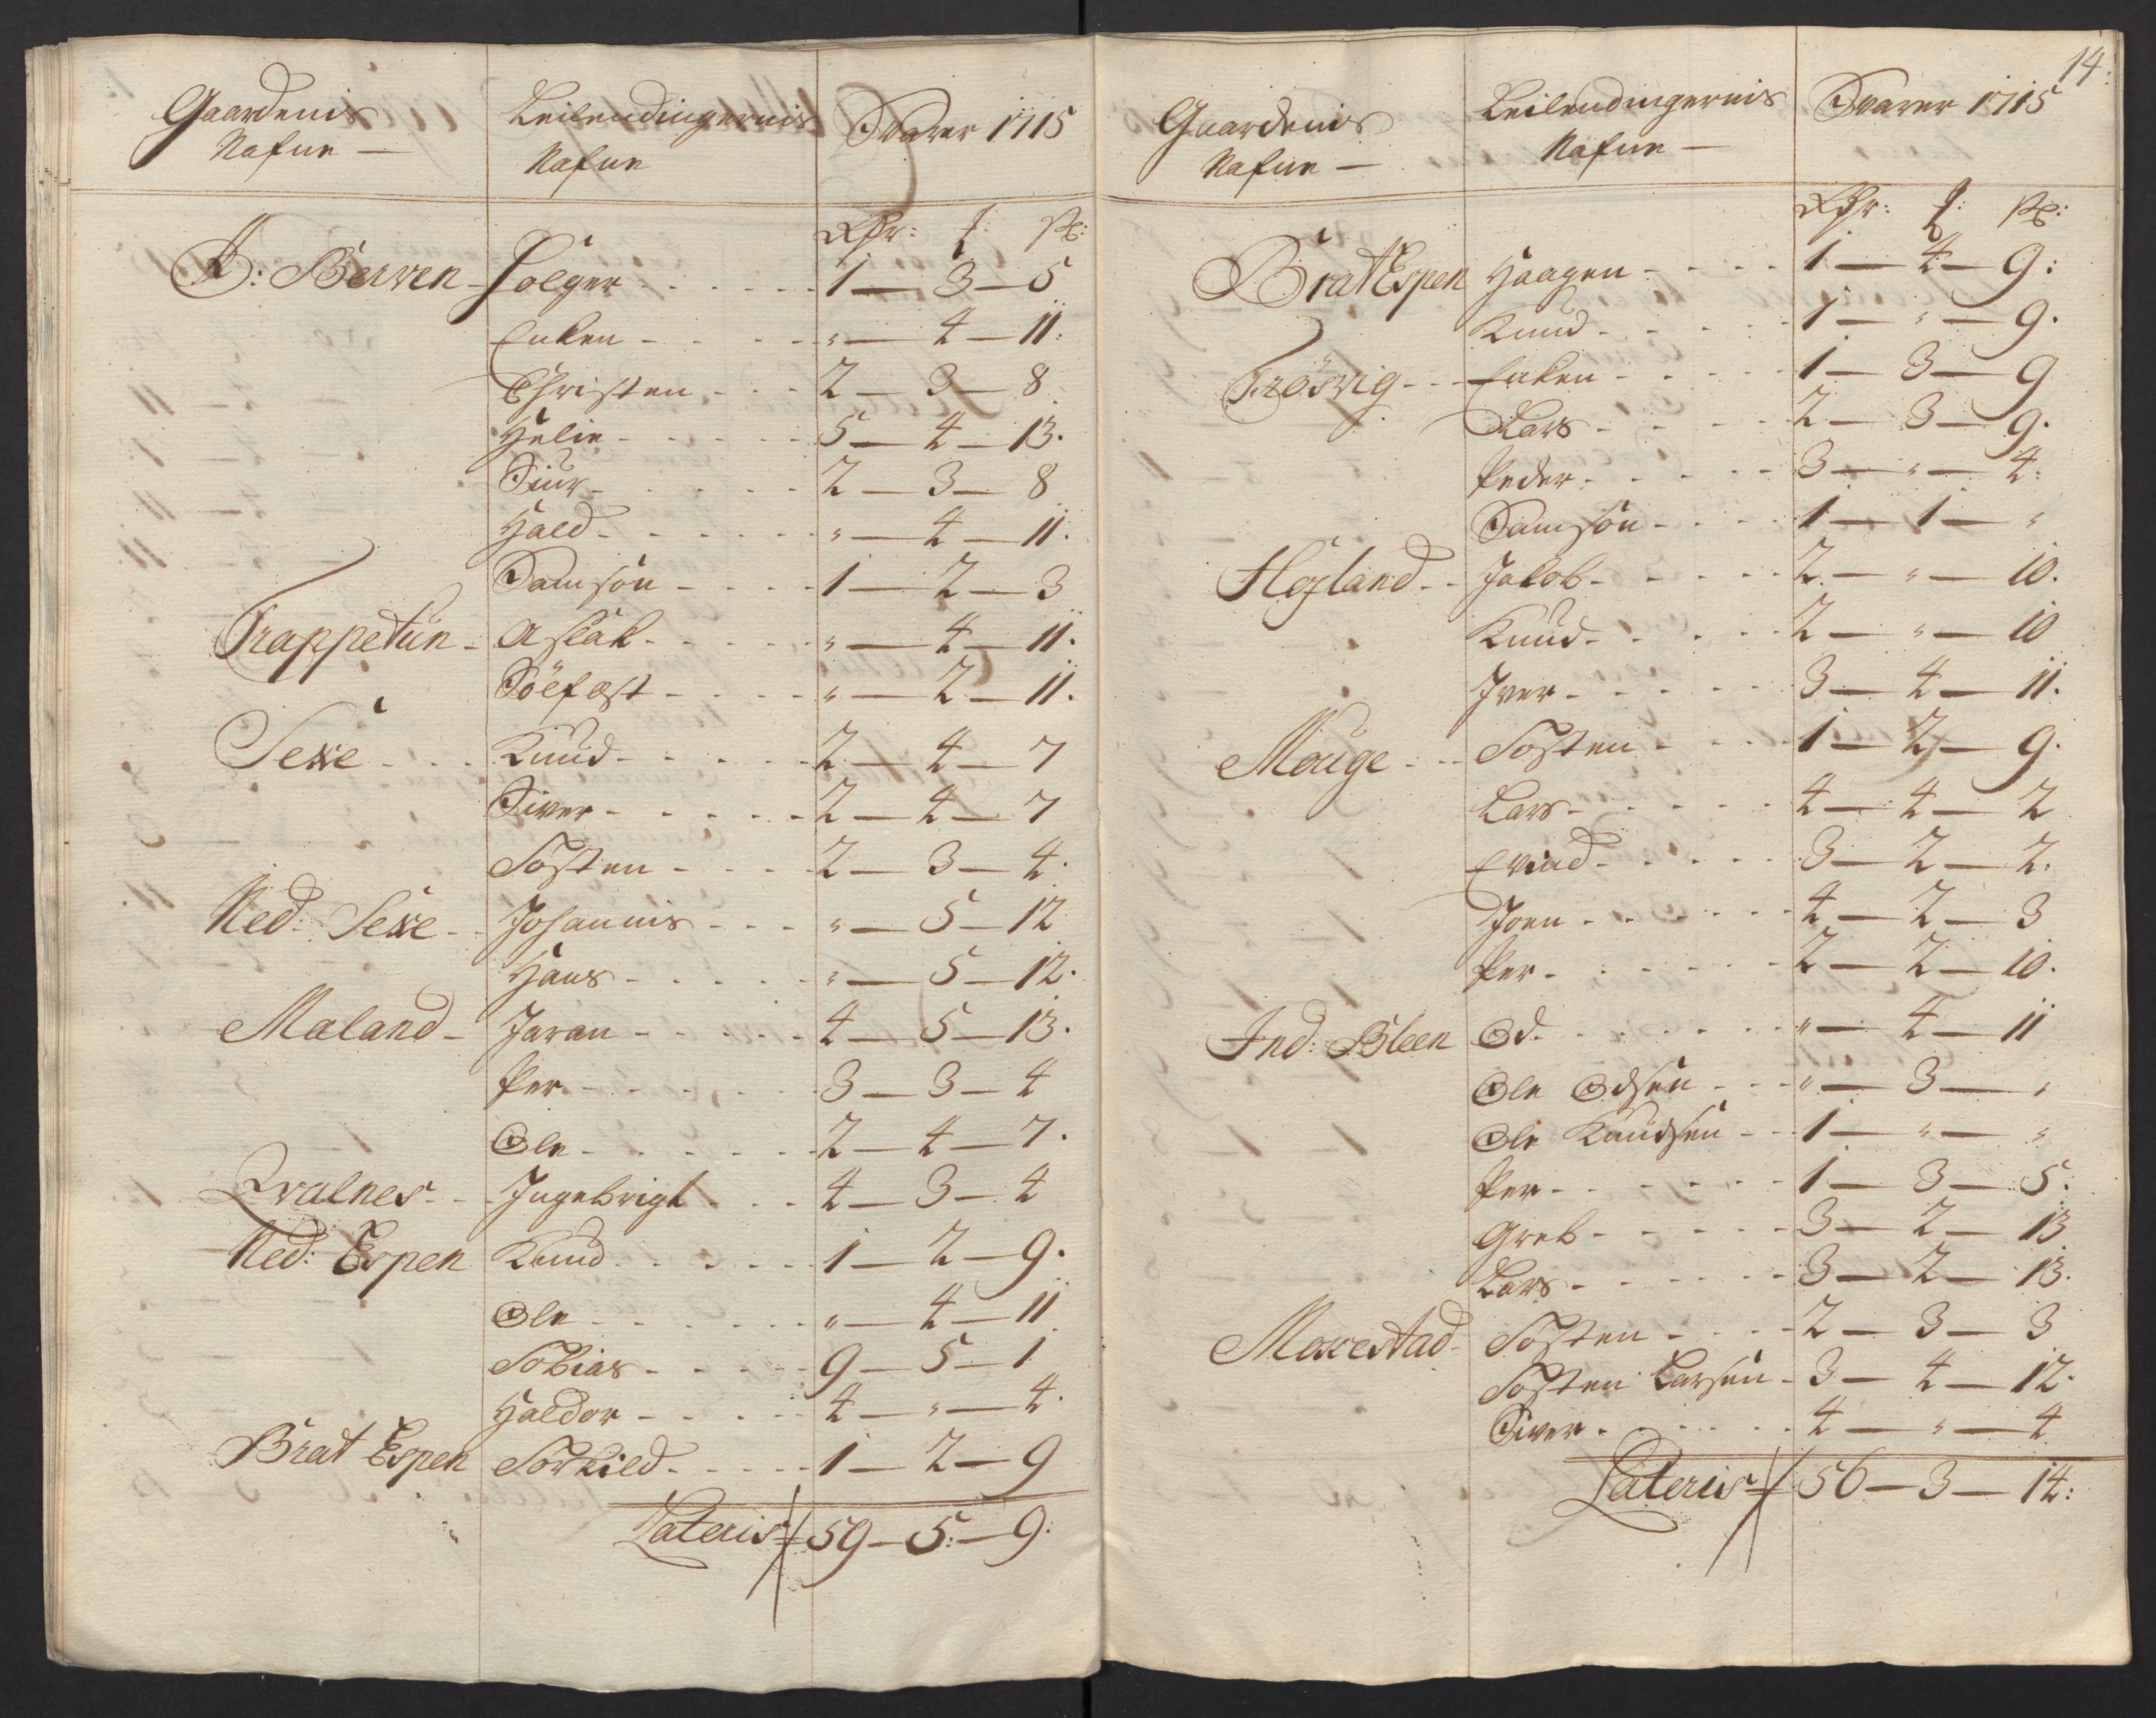 Gaardenis Nafne —
Leilendingernis Nafne
Svarer 1715
Rdr: ꝉ: ß:
D: Berven - Holger - - - 1 — 3 — 5
Enken - - - " — 4 — 11:
Christen - - - 2 — 3 — 8
Helie - - - 5 — 4 — 13.
Siur - - - 2 — 3 — 8
Hald - - - " — 4 — 11.
Samson - - - 1 — 2 — 3
Trappetun - Aslak - - - " — 4 — 11.
Sölfæst - - - " — 2 — 11.
Sexe - - - Knud - - - 2 — 4 — 7
Siver - - - 2 — 4 — 7
Tosten - - - 2 — 3 — 4.
Ned: Sexe - Johannis - - - " — 5 — 12
Hans - - - " — 5 — 12.
Mæland - Jaran - - - 4 — 5 — 13.
Per - - - 3 — 3 — 4
Ole - - - 2 — 4 — 7.
Qvalnes - - Ingebrigt - - 4 — 3 — 4
Ned: Espen Knud - - - 1 — 2 — 9.
Ole - - - " — 4 — 11
Tobias - - - 9 — 5 — 1
Haldor - - - 4 — " — 4.
Brat Espen Torkild - - - 1 — 2 — 9
Lateris 59 — 5: — 9:
14:
Gaardenis Nafne —
Leilendingernis Nafne —
Svarer 1715
Rdr: ꝉ: ß:
Brat Espen Haagen - - - 1 — 4 — 9:
Knud - - - 1 — " — 9.
Frösvig - - Enken - - - 1 — 3 — 9
Lars - - - 2 — 3 — 9.
Peder - - - 3 — " — 4:
Samson - - - 1 — 1 — "
Højland - - Jakob - - - 2 — " — 10.
Knud - - - 2 — " — 10
Iver - - - 3 — 4 — 11.
Mauge - - Tosten - - - 1 — 2 — 9.
Lars - - - 4 — 4 — 2
Evind - - - 3 — 2 — 2.
Joen - - - 4 — 2 — 3
Per - - - 2 — 2 — 10.
Ind: Bleen Od - - - " — 4 — 11
Ole Odsen - - - " — 3 — "
Ole Knudsen - - 1 — " — "
Per - - - 1 — 3 — 5.
Greb - - - 3 — 2 — 13
Lars - - - 3 — 2 — 13.
Moxestad - Tosten - - - 2 — 3 — 3
Tosten Larsen - 3 — 4 — 12.
Siver - - - 4 — " — 4
Lateris 56 — 3 — 14: